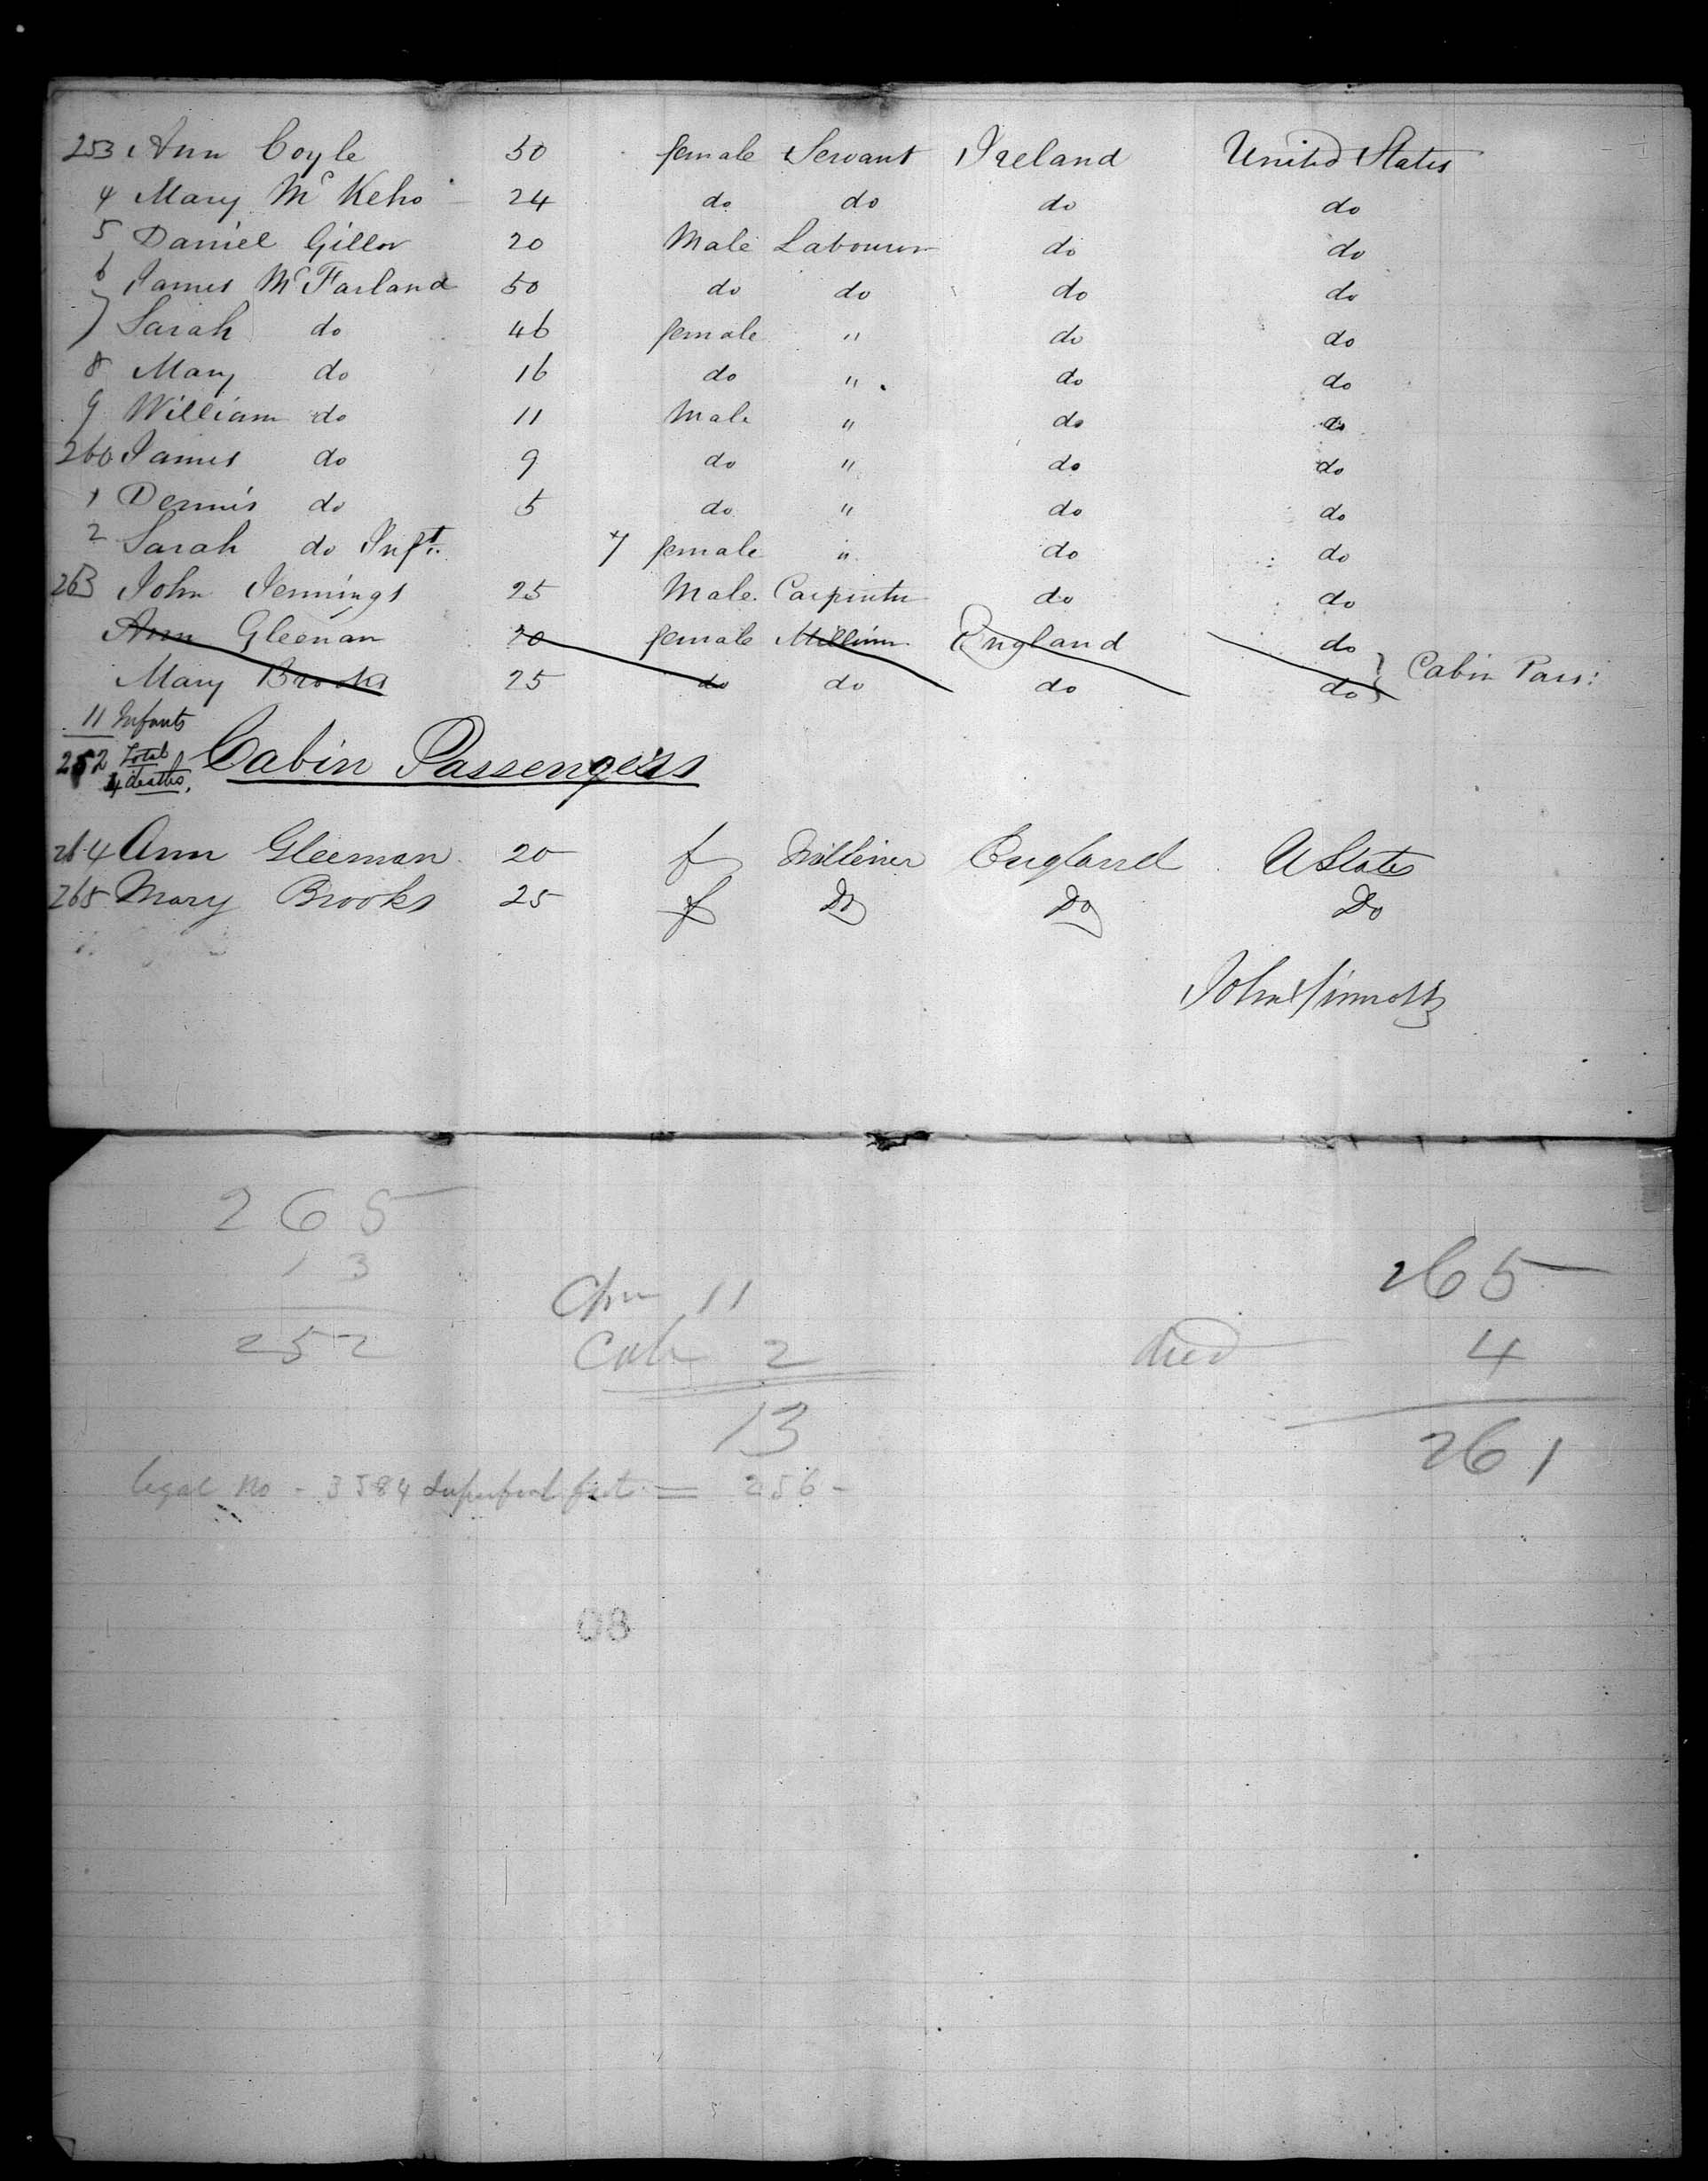 253 Ann Coyle 50 female Servant Ireland United States
4 Mary Mc Keho 24 do do do do
5 Daniel Giller 20 Male Labourer do do
6 James McFarland 50 do do do do
7 Sarah do 46 female " do do
8 Mary do 16 do " do do
9 William do 11 Male " do do
260 James do 9 do " do do
1 Dennis do 5 do " do do
2 Sarah do Inft. 7 female " do do
263 John Jennings 25 Male Carpinter do do
Ann Gleenan 20 female Milliner England do
Mary Brooks 25 do do do do } Cabin Pass:
11 Infants
252 Total
4 deaths,
Cabin Passengers
264 Ann Gleeman 20 f Milliner England U States
265 Mary Brooks 25 f Do Do Do
John Sinnott
265
13
252
Chn 11
Cab 2
13
265
died 4
261
legal No - 3584 Superficial feet = 256 -
08